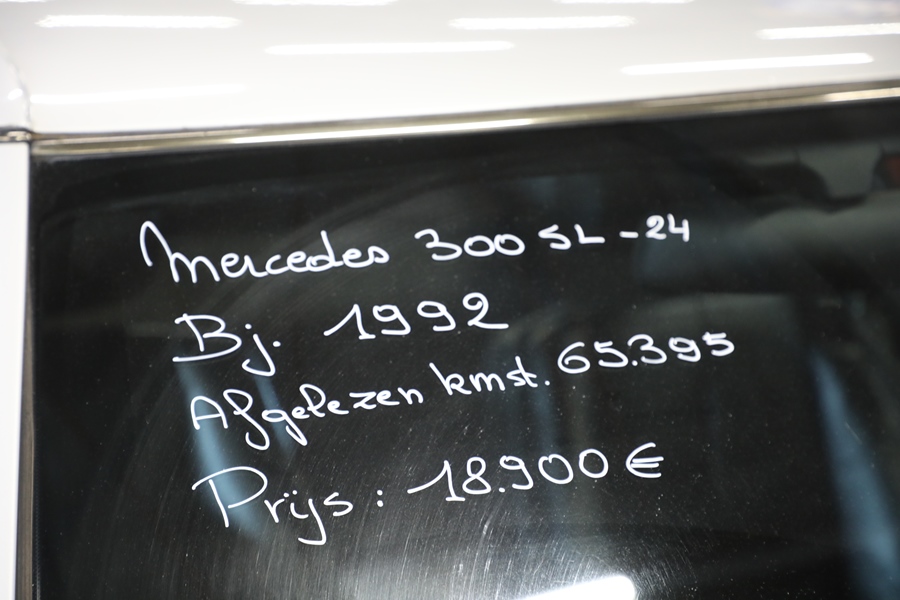 Mercedes 300 SL - 24
Bj. 1992
Afgelezen kmst. 65.395
Prijs : 18.900 €